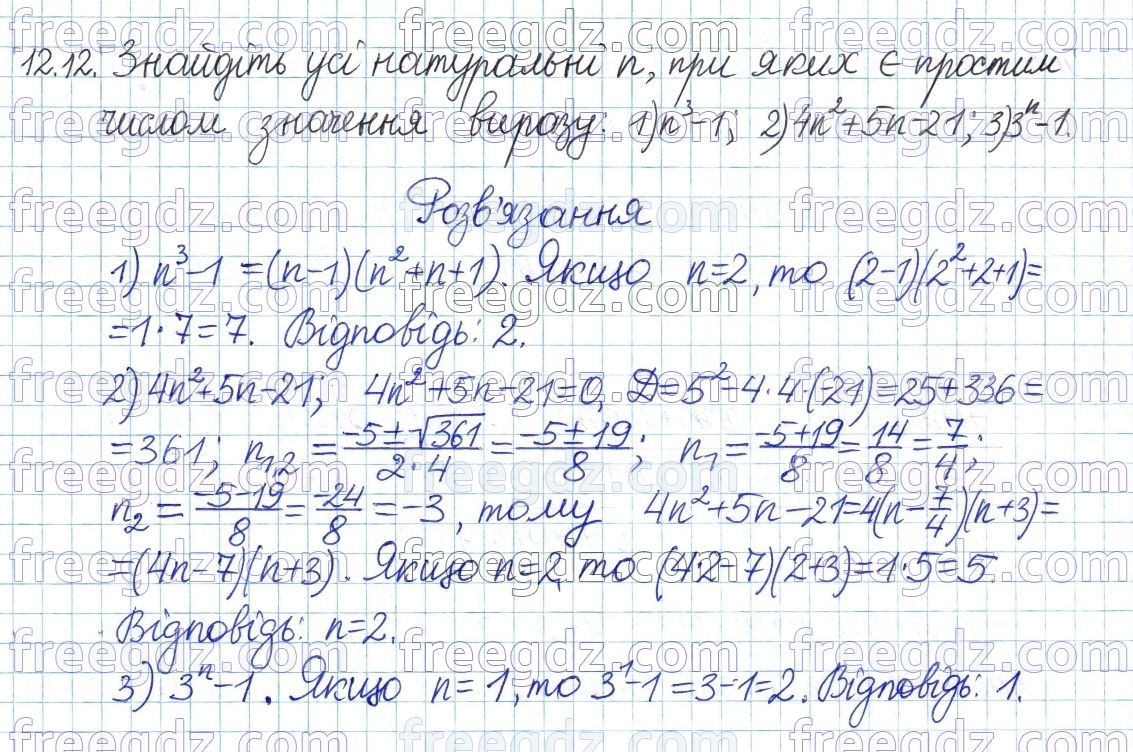 12.12. Знайдіть усі натуральні n, при яких є простим
числом значення виразу: 1) n³-1; 2) 4n²+5n-21; 3) 3ⁿ-1.
Розв'язання
1) n³-1 = (n-1)(n²+n+1). Якщо n=2, то (2-1)(2²+2+1)=
=1·7=7. Відповідь: 2.
2) 4n²+5n-21; 4n²+5n-21=0, D=5²-4·4·(21)=25+336=
=361; n₁,₂ = (-5±√361)/(2·4) = (-5±19)/8; n₁ = (-5+19)/8 = 14/8 = 7/4;
n₂ = (-5-19)/8 = -24/8 = -3, тому 4n²+5n-21=4(n-7/4)(n+3)=
=(4n-7)(n+3). Якщо n=2, то (4·2-7)(2+3)=1·5=5
Відповідь: n=2.
3) 3ⁿ-1. Якщо n=1, то 3¹-1=3-1=2. Відповідь: 1.
freegdz.com